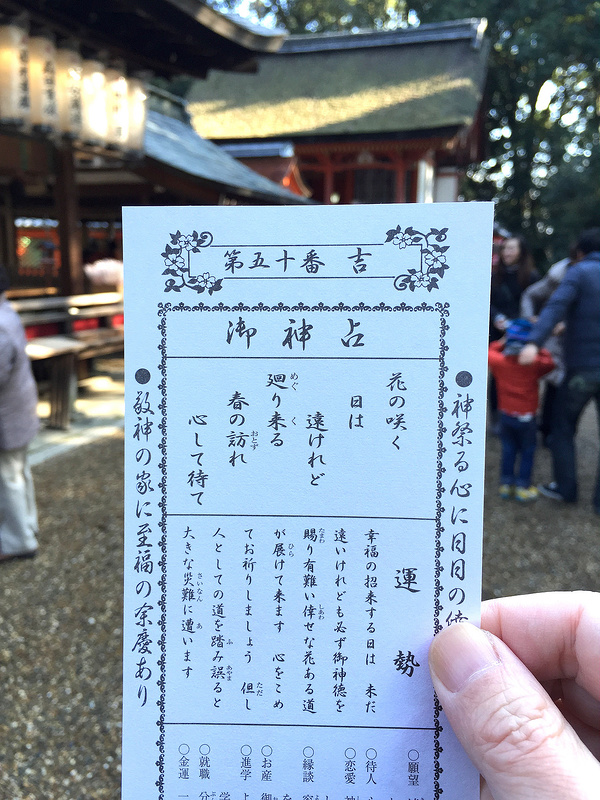 第五十番 吉
御神占
花の咲く
日は
遠けれど
廻り来る
春の訪れ
心して待て
運勢
幸福の招来する日は 未だ
遠いけれども必ず御神徳を
賜り有難い倖せな花ある道
が展けて来ます 心をこめ
てお祈りしましょう 但し
人としての道を踏み誤ると
大きな災難に遭います
●神祭る心に日日の
●敬神の家に至福の余慶あり
○願望
○待人
○恋愛
○縁談
○お産 御
○進学 よ
○就職 分
○金運 一